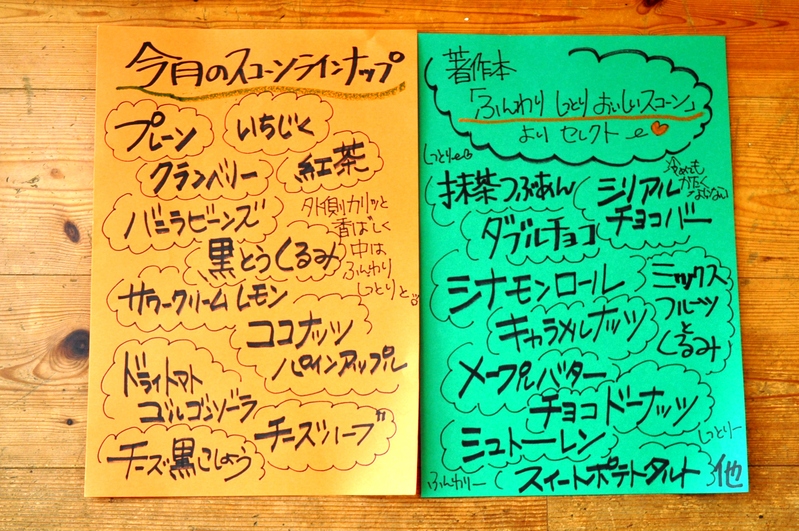 今月のスコーンラインナップ
プレーン
いちじく
クランベリー
紅茶
バニラビーンズ
外側カリッと
香ばしく
中は
ふんわり
しっとりと
黒とうくるみ
サワークリームレモン
ココナッツ
パインアップル
ドライトマト
ゴルゴンゾーラ
チーズハーブ
チーズ黒こしょう
著作本
「ふんわり しっとり おいしいスコーン」
より セレクト
しっとり
抹茶つぶあん
シリアル
チョコバー
冷めても
かたく
ならない
ダブルチョコ
シナモンロール
ミックス
フルーツ
と
くるみ
キャラメルナッツ
メープルバター
チョコドーナッツ
シュトーレン
しっとりー
ふんわりー
スイートポテトタルト 他